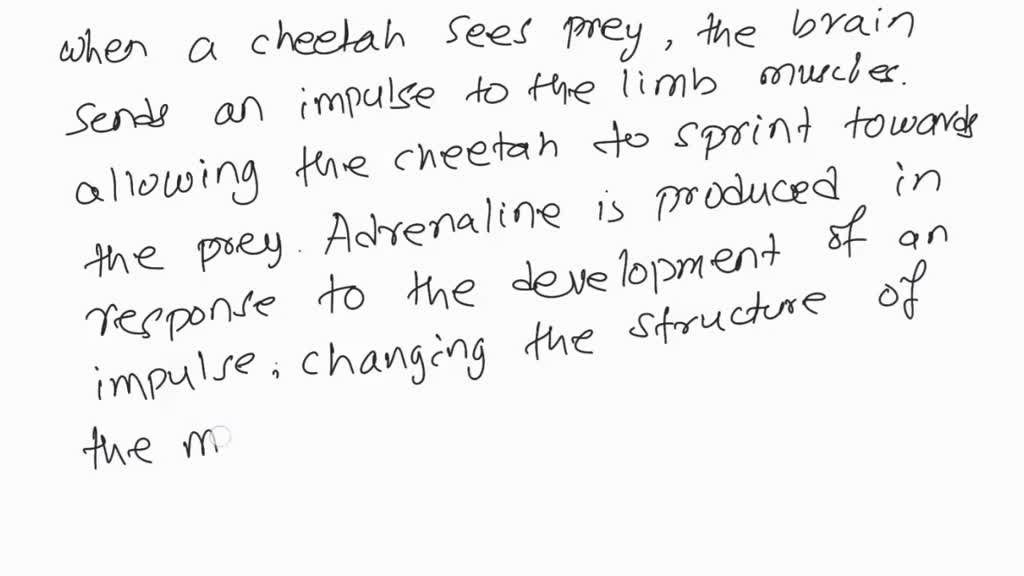 when a cheetah sees prey, the brain
sends an impulse to the limb muscles.
allowing the cheetah to sprint towards
the prey. Adrenaline is produced in
response to the development of an
impulse, changing the structure of
the m